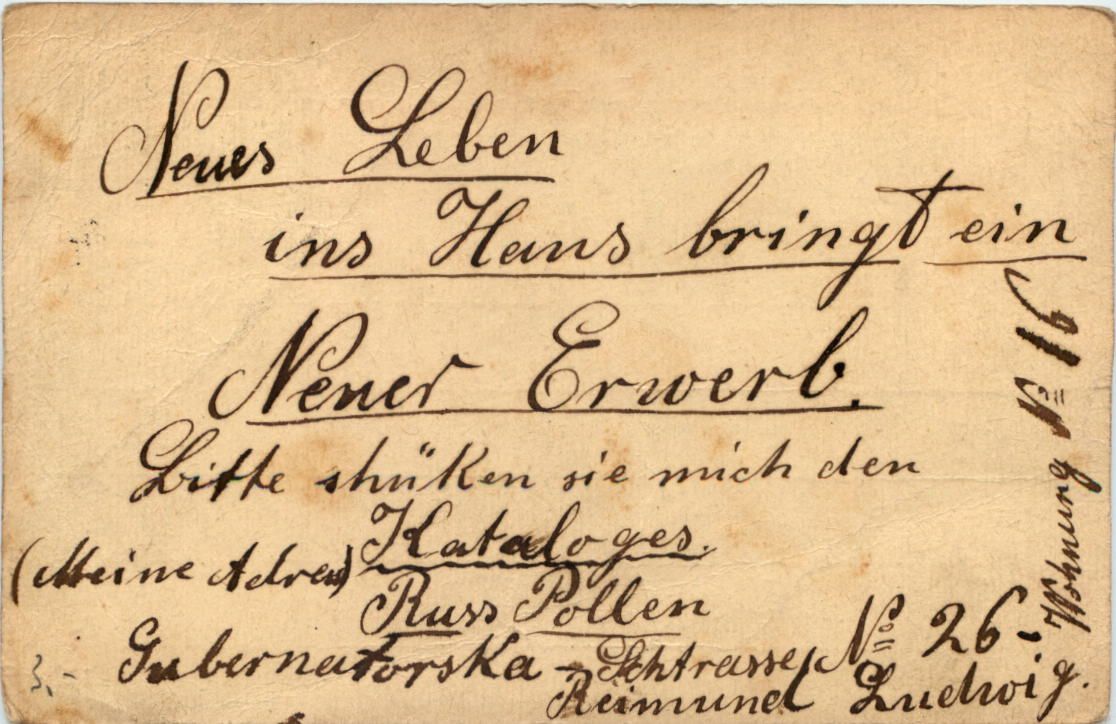 Neues Leben
ins Haus bringt ein
Neuer Erwerb.
Bitte shüken sie mich den
Kataloges.
(Meine Adress)
Russ Pollen
Gubernatorska - Schtrasse, № 26-
Wohnung № 16
Reimund Ludwig.
3,-